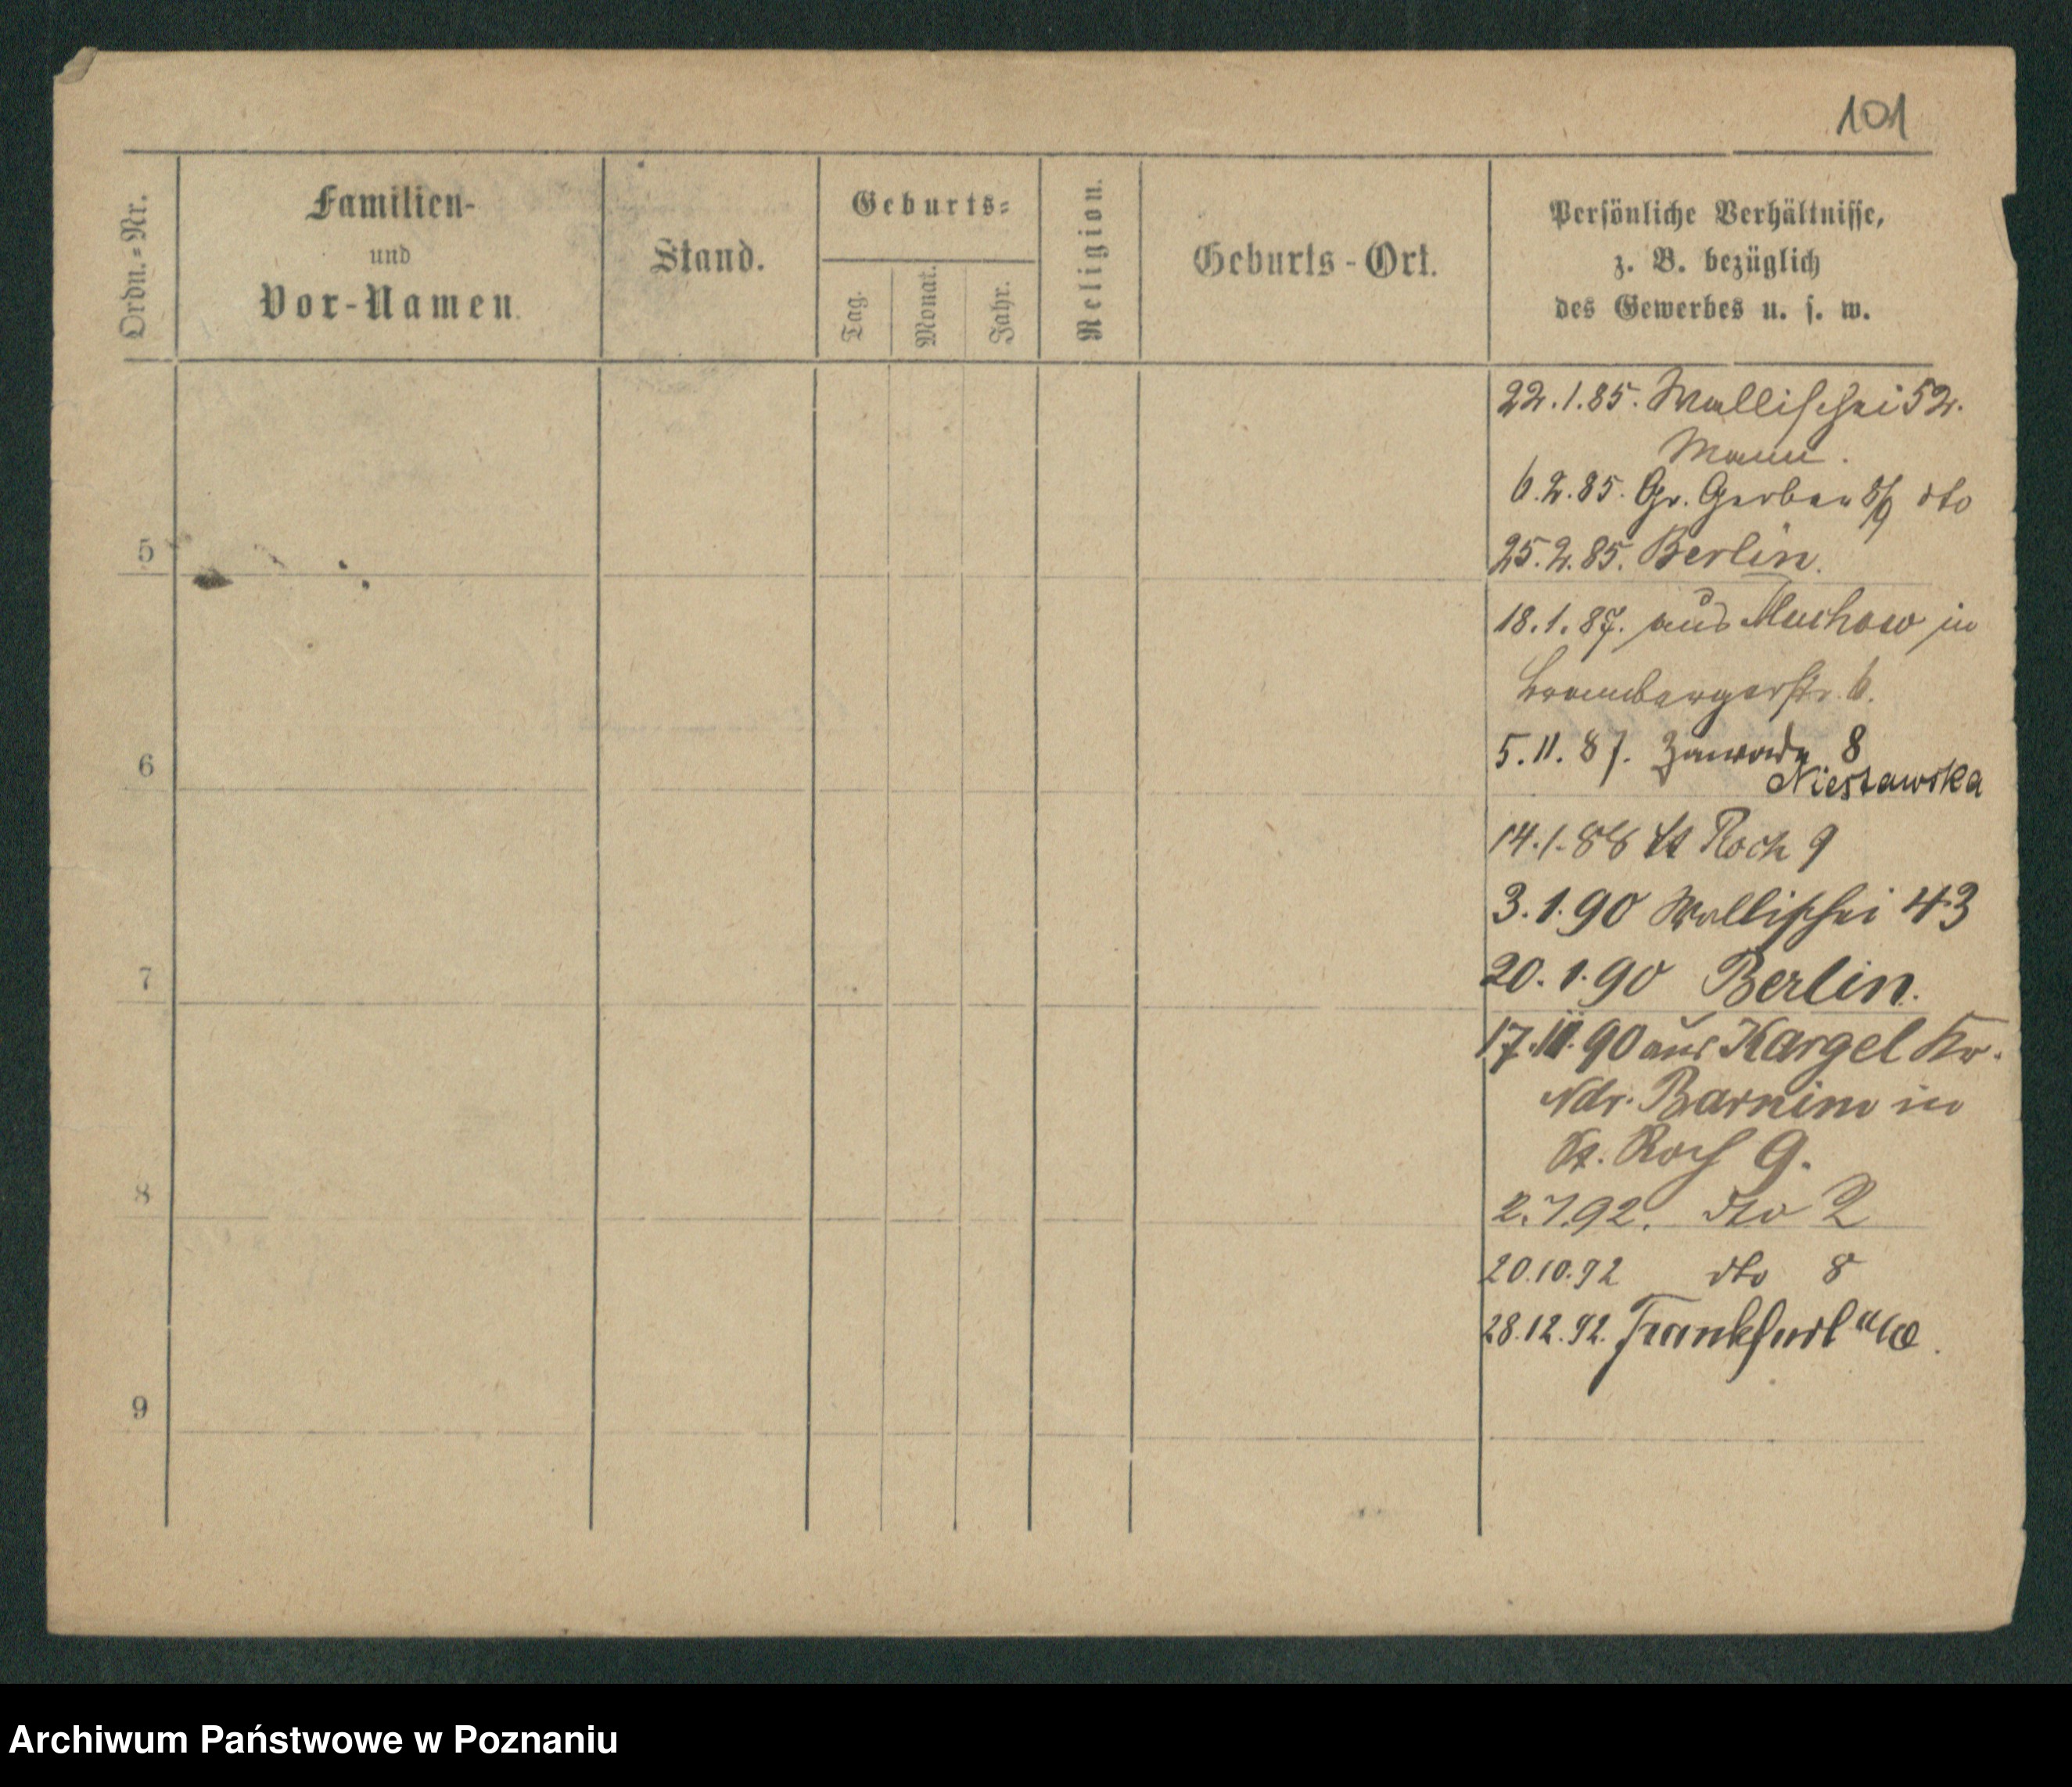 101
Ordn.=Nr.
Familien-
und
Vor-Namen.
Stand.
Geburts=
Tag.
Monat.
Jahr.
Religion.
Geburts-Ort.
Persönliche Verhältnisse,
z. B. bezüglich
des Gewerbes u. s. w.
22.1.85. Wallischei 52.
Mann.
6.2.85. Gr. Gerber 8/9 dto
5
25.2.85. Berlin.
18.1.87. aus in
Brombergerstr. 6.
5.11.87. Zawady 8
6
Niestawska
14.1.88 St Roch 9
3.1.90 Wallischei 43
7
20.1.90 Berlin.
17.III.90 aus Kargel Kr.
Ndr. Barnim in
St. Roch 9.
8
2.7.92. dto 2
20.10.92 dto 8
28.12.92. Frankfurt a/O.
9
Archiwum Państwowe w Poznaniu